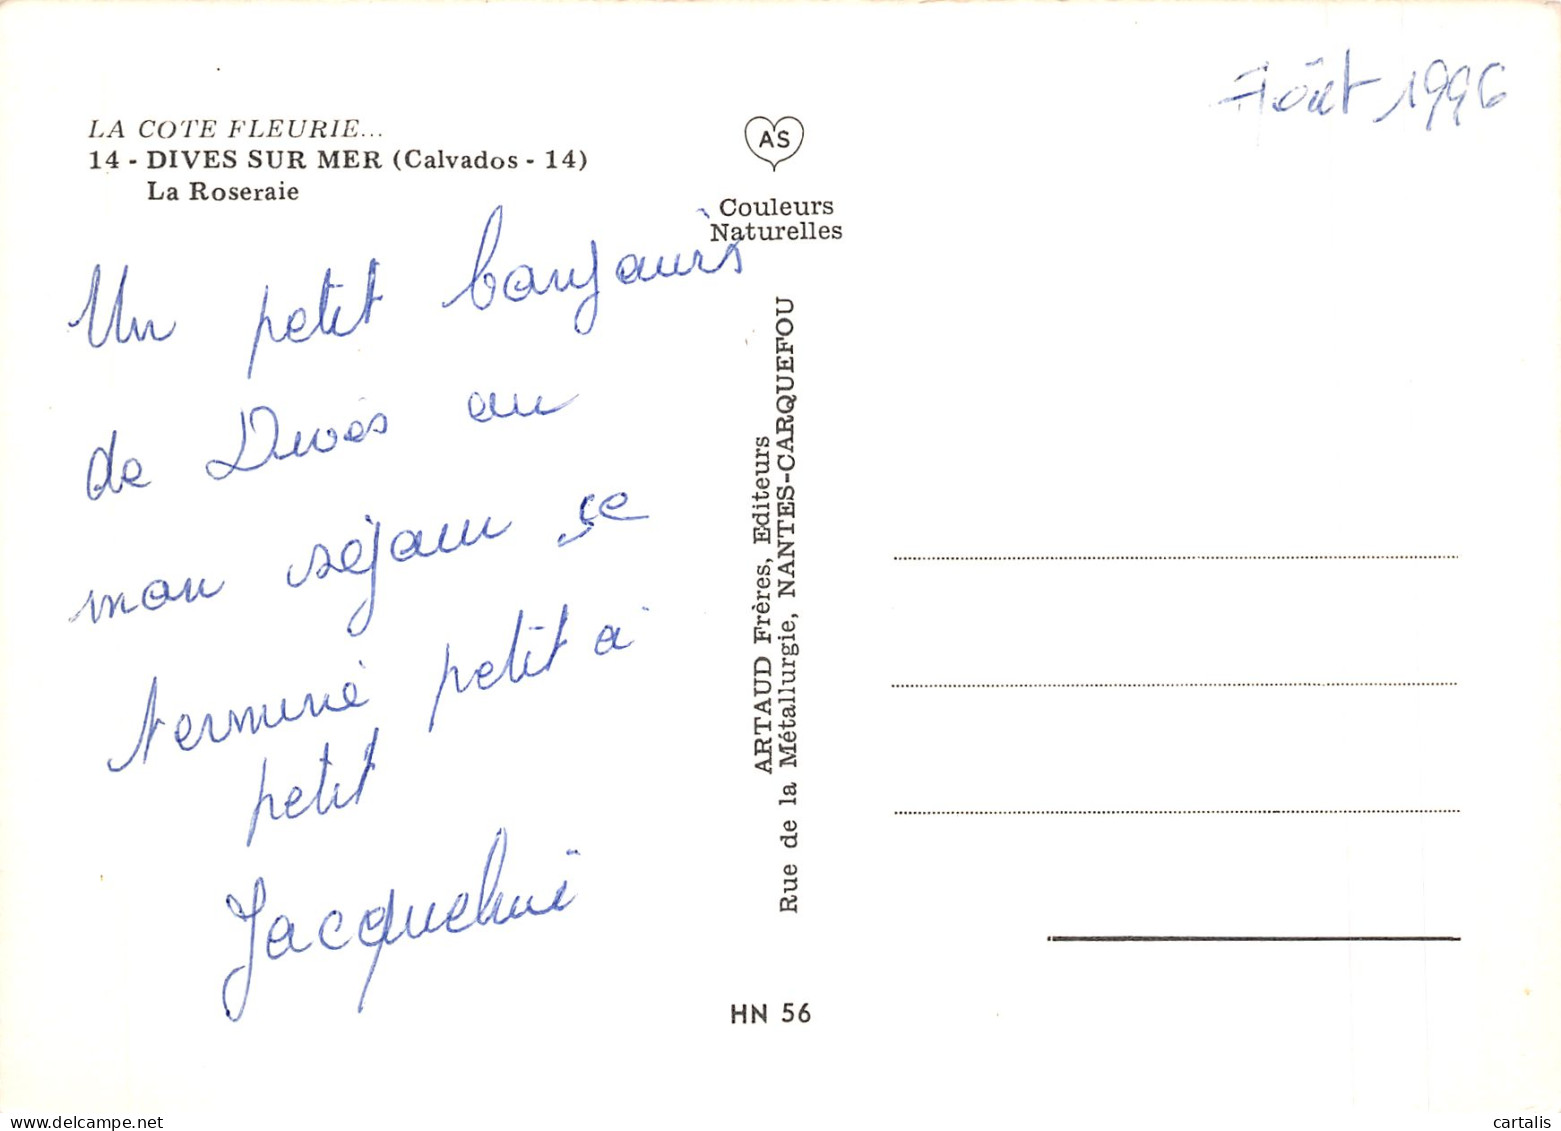 Août 1996
LA COTE FLEURIE...
14 - DIVES SUR MER (Calvados - 14)
La Roseraie
AS
Couleurs
Naturelles
Un petit bonjours
de Dives ou
mon séjour se
terminé petit à
petit
Jacqueline
ARTAUD Frères, Editeurs
Rue de la Métallurgie, NANTES-CARQUEFOU
HN 56
www.delcampe.net
cartalis